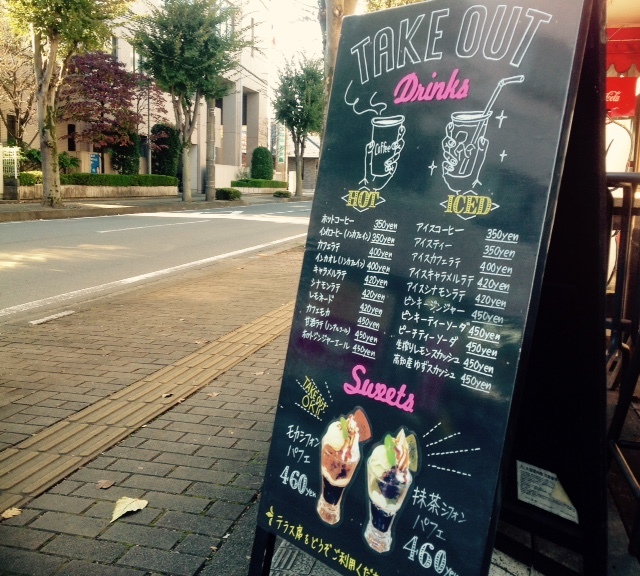 TAKE OUT
Drinks
Coffee
HOT
ホットコーヒー 350yen
インカコーヒー(ノンカフェイン) 350yen
カフェラテ 400yen
インカオレ(ノンカフェイン) 400yen
キャラメルラテ 420yen
シナモンラテ 420yen
レモネード 420yen
カフェモカ 450yen
甘酒ラテ(ノンアルコール) 450yen
ホットジンジャーエール 450yen
ICED
アイスコーヒー 350yen
アイスティー 350yen
アイスカフェラテ 400yen
アイスキャラメルラテ 420yen
アイスシナモンラテ 420yen
ピンキージンジャー 450yen
ピンキーティーソーダ 450yen
ピーチティーソーダ 450yen
生搾りレモンスカッシュ 450yen
高知産ゆずスカッシュ 450yen
Sweets
TAKE OUT
O.K!!
モカシフォン
パフェ
460yen
抹茶シフォン
パフェ
460yen
テラス席もどうぞご利用くだ